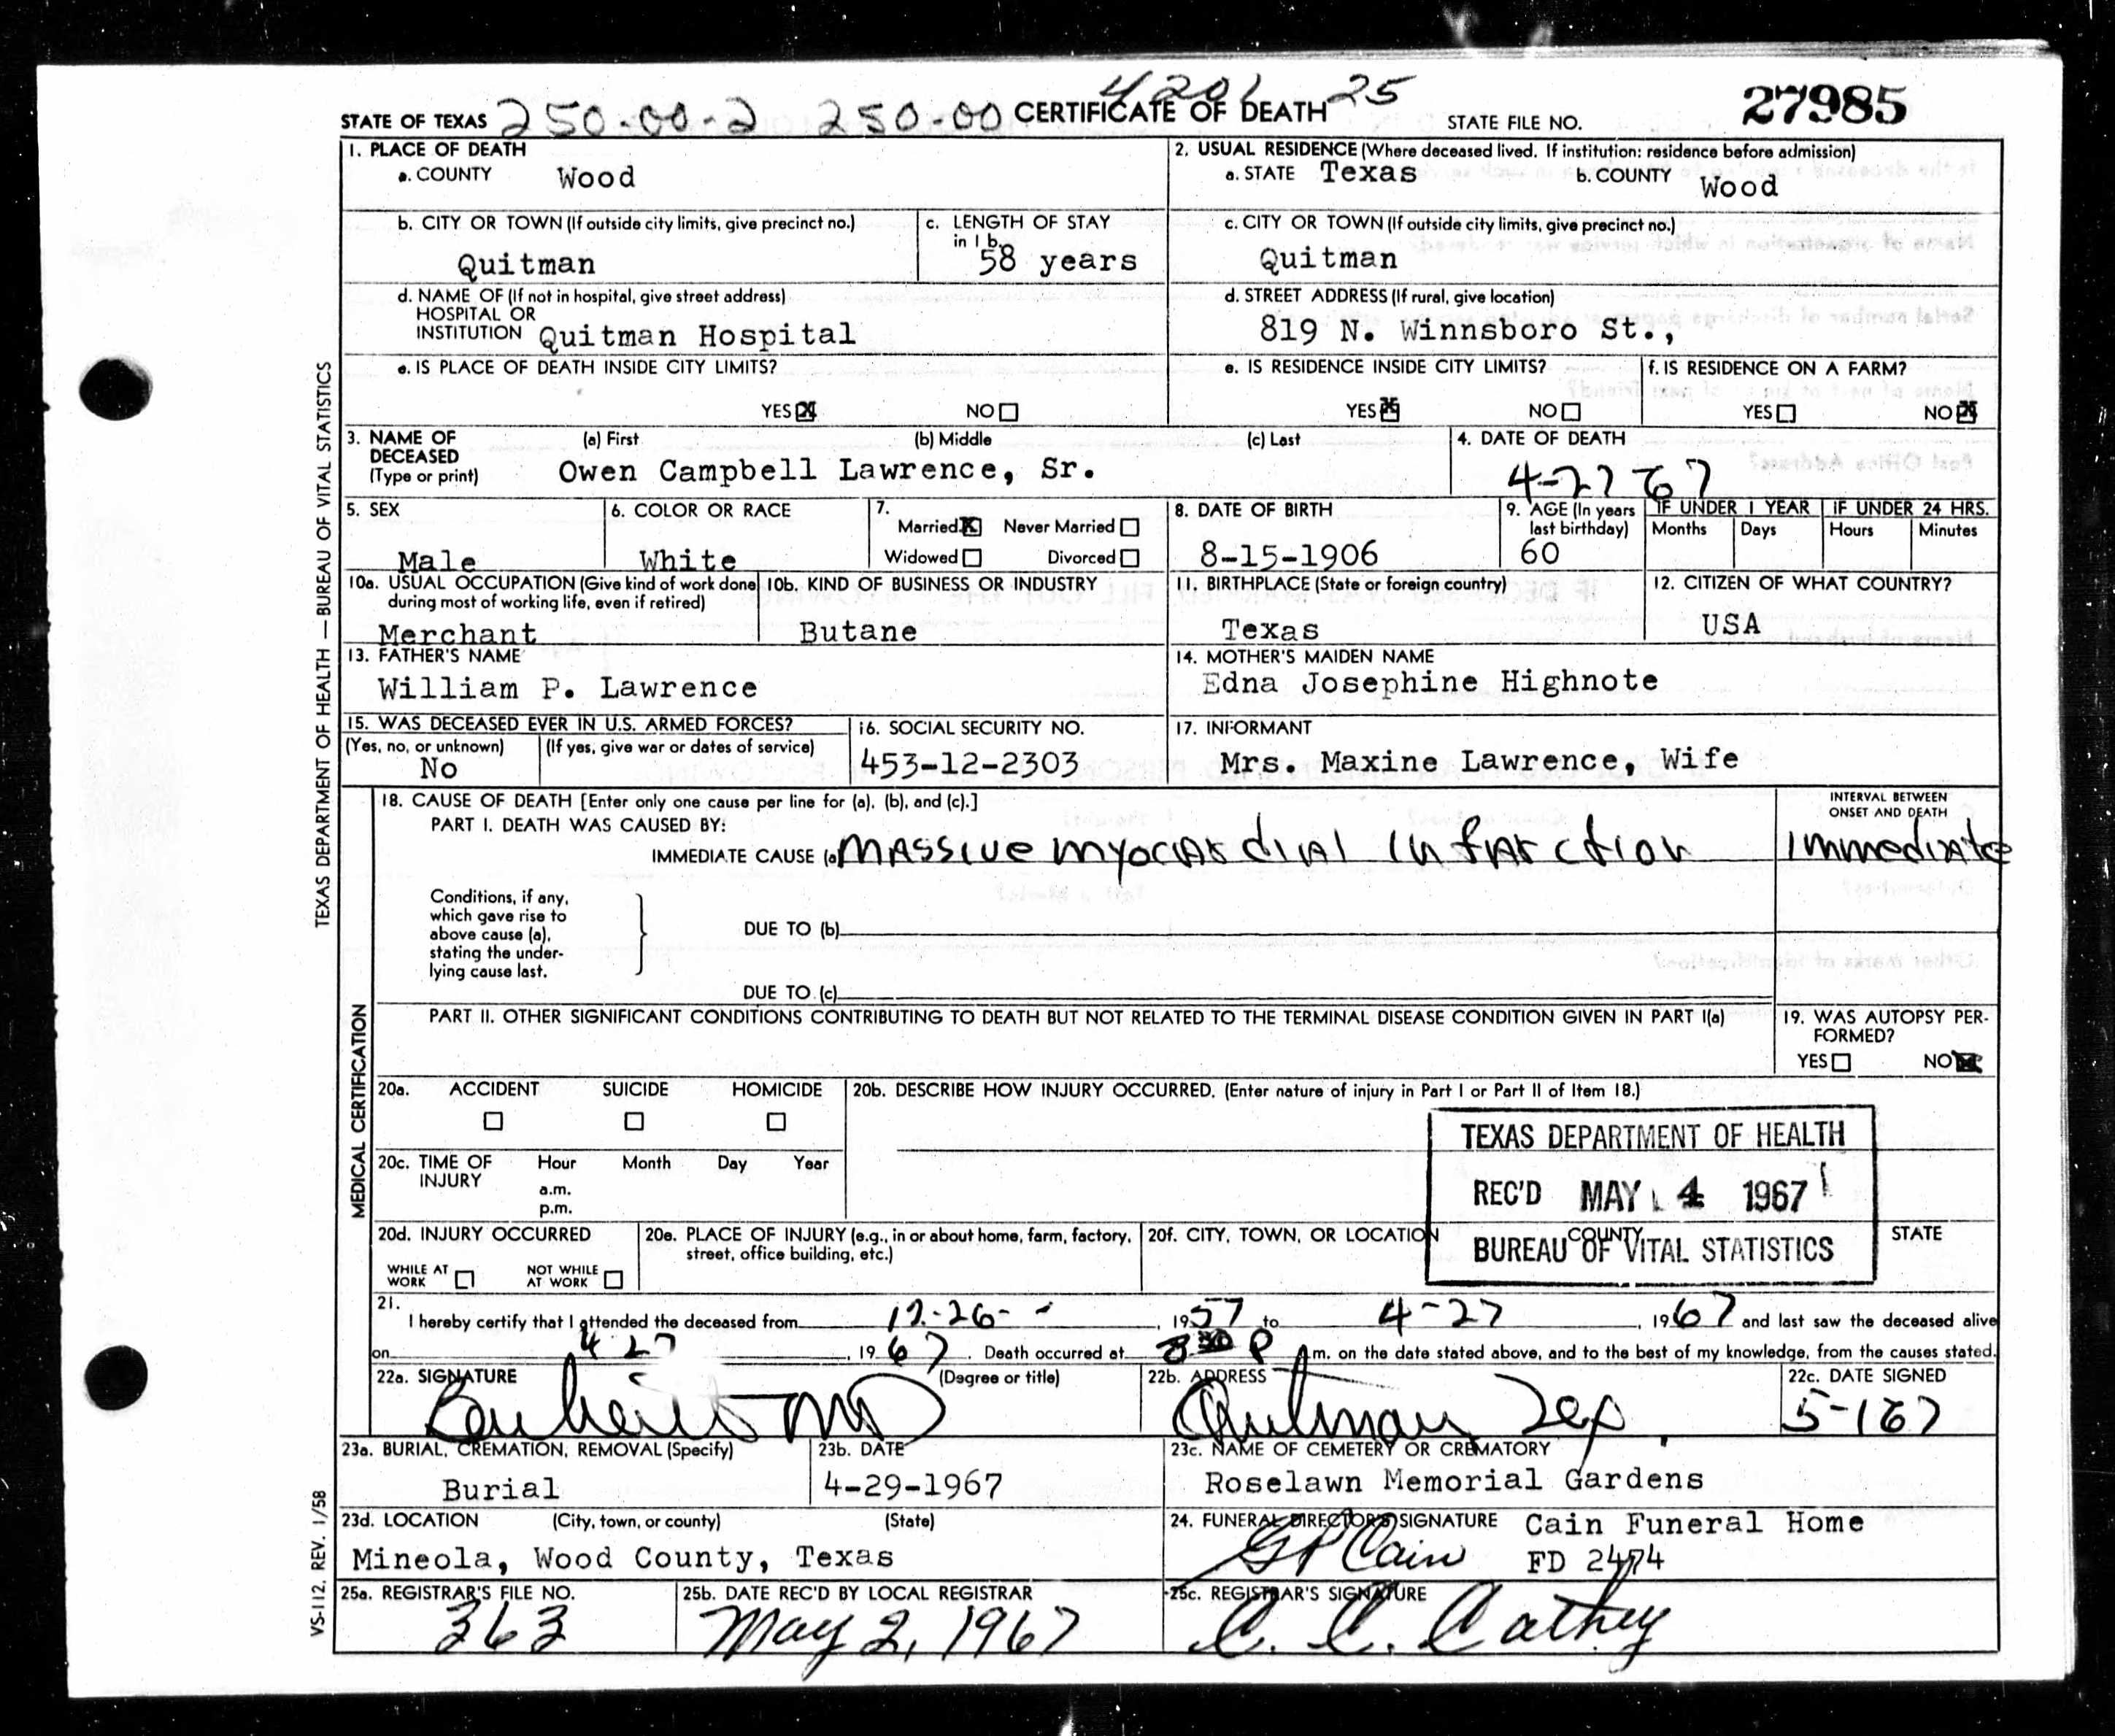 4201 25
STATE OF TEXAS 250.00-2 250.00 CERTIFICATE OF DEATH STATE FILE NO. 27985
1. PLACE OF DEATH
a. COUNTY Wood
2. USUAL RESIDENCE (Where deceased lived. If institution: residence before admission)
a. STATE Texas b. COUNTY Wood
b. CITY OR TOWN (If outside city limits, give precinct no.)
Quitman
c. LENGTH OF STAY
in 1 b.
58 years
c. CITY OR TOWN (If outside city limits, give precinct no.)
Quitman
d. NAME OF (If not in hospital, give street address)
HOSPITAL OR
INSTITUTION Quitman Hospital
d. STREET ADDRESS (If rural, give location)
819 N. Winnsboro St.,
e. IS PLACE OF DEATH INSIDE CITY LIMITS?
YES NO
e. IS RESIDENCE INSIDE CITY LIMITS?
YES NO
f. IS RESIDENCE ON A FARM?
YES NO
3. NAME OF
DECEASED
(Type or print)
(a) First (b) Middle (c) Last
Owen Campbell Lawrence, Sr.
4. DATE OF DEATH
4-27 67
5. SEX
Male
6. COLOR OR RACE
White
7.
Married Never Married
Widowed Divorced
8. DATE OF BIRTH
8-15-1906
9. AGE (In years
last birthday)
60
IF UNDER 1 YEAR
Months Days
IF UNDER 24 HRS.
Hours Minutes
10a. USUAL OCCUPATION (Give kind of work done
during most of working life, even if retired)
Merchant
10b. KIND OF BUSINESS OR INDUSTRY
Butane
11. BIRTHPLACE (State or foreign country)
Texas
12. CITIZEN OF WHAT COUNTRY?
USA
13. FATHER'S NAME
William P. Lawrence
14. MOTHER'S MAIDEN NAME
Edna Josephine Highnote
15. WAS DECEASED EVER IN U.S. ARMED FORCES?
(Yes, no, or unknown) (If yes, give war or dates of service)
No
16. SOCIAL SECURITY NO.
453-12-2303
17. INFORMANT
Mrs. Maxine Lawrence, Wife
18. CAUSE OF DEATH [Enter only one cause per line for (a), (b), and (c).]
PART I. DEATH WAS CAUSED BY:
IMMEDIATE CAUSE (a) Massive myocardial infarction
INTERVAL BETWEEN
ONSET AND DEATH
Immediate
Conditions, if any,
which gave rise to
above cause (a),
stating the under-
lying cause last.
DUE TO (b)
DUE TO (c)
PART II. OTHER SIGNIFICANT CONDITIONS CONTRIBUTING TO DEATH BUT NOT RELATED TO THE TERMINAL DISEASE CONDITION GIVEN IN PART I(a)
19. WAS AUTOPSY PER-
FORMED?
YES NO
20a. ACCIDENT SUICIDE HOMICIDE
20b. DESCRIBE HOW INJURY OCCURRED. (Enter nature of injury in Part I or Part II of Item 18.)
20c. TIME OF
INJURY
Hour Month Day Year
a.m.
p.m.
TEXAS DEPARTMENT OF HEALTH
REC'D MAY 4 1967
BUREAU OF VITAL STATISTICS
20d. INJURY OCCURRED
WHILE AT
WORK
NOT WHILE
AT WORK
20e. PLACE OF INJURY (e.g., in or about home, farm, factory,
street, office building, etc.)
20f. CITY, TOWN, OR LOCATION COUNTY STATE
21.
I hereby certify that I attended the deceased from 12-26- , 1957 to 4-27 , 1967 and last saw the deceased alive
on 4 27 , 1967 . Death occurred at 8:30 P m. on the date stated above, and to the best of my knowledge, from the causes stated.
22a. SIGNATURE (Degree or title)
MD
22b. ADDRESS
Quitman Tex.
22c. DATE SIGNED
5-1 67
23a. BURIAL, CREMATION, REMOVAL (Specify)
Burial
23b. DATE
4-29-1967
23c. NAME OF CEMETERY OR CREMATORY
Roselawn Memorial Gardens
23d. LOCATION (City, town, or county) (State)
Mineola, Wood County, Texas
24. FUNERAL DIRECTOR'S SIGNATURE Cain Funeral Home
GP Cain FD 2474
25a. REGISTRAR'S FILE NO.
363
25b. DATE REC'D BY LOCAL REGISTRAR
May 2, 1967
25c. REGISTRAR'S SIGNATURE
C. C. Cathey
TEXAS DEPARTMENT OF HEALTH — BUREAU OF VITAL STATISTICS
MEDICAL CERTIFICATION
VS-112, REV. 1/58